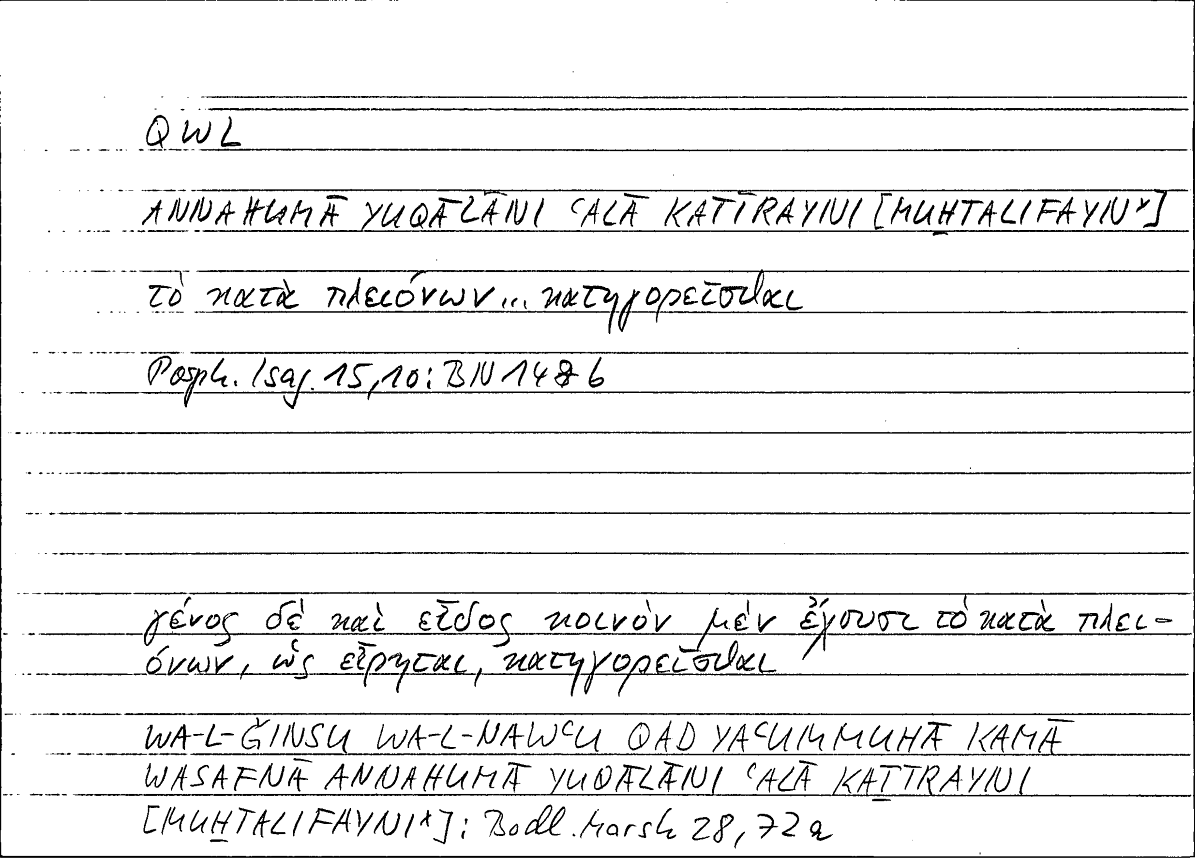 QWL
ANNAHUMĀ YUQĀLĀNI ʿALĀ KATĪRAYNI [MUḪTALIFAYNⁱ]
τὸ κατὰ πλειόνων... κατηγορεῖσθαι
Porph. Isag. 15,10: BN 148b
γένος δὲ καὶ εἶδος κοινὸν μὲν ἔχουσι τὸ κατὰ πλει-
όνων, ὡς εἴρηται, κατηγορεῖσθαι
WA-L-ǦINSU WA-L-NAWʿU QAD YAʿUMMUHĀ KAMĀ
WASAFNĀ ANNAHUMĀ YUQĀLĀNI ʿALĀ KAṮĪRAYNI
[MUḪTALIFAYNI*]: Bodl. Marsh 28, 72a